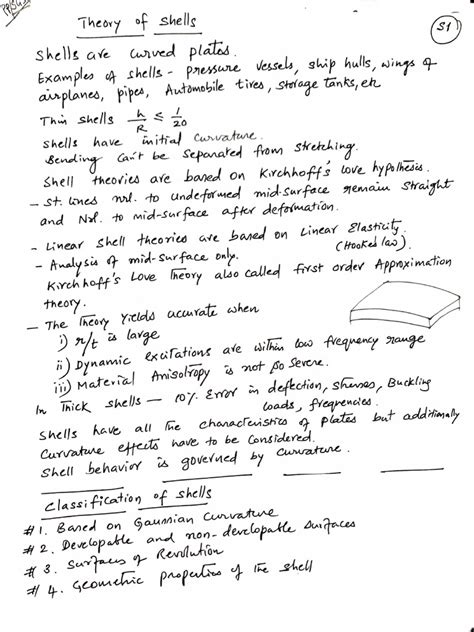 Theory of Shells
S1
Shells are curved plates.
Examples of shells - pressure vessels, ship hulls, wings of
airplanes, pipes, Automobile tires, storage tanks, etc
Thin shells h/R ≤ 1/20
Shells have initial curvature.
Bending can't be separated from stretching.
Shell theories are based on Kirchhoff's Love hypothesis.
- St. lines nrl. to undeformed mid-surface remain straight
and Nrl. to mid-surface after deformation.
- Linear shell theories are based on Linear Elasticity
(Hooked law).
- Analysis of mid-surface only.
Kirchhoff's Love Theory also called first order Approximation
theory.
- The Theory Yields accurate when
i) r/t is large
ii) Dynamic excitations are within low frequency range
iii) Material Anisotropy is not so severe.
In Thick shells — 10% Error in deflection, stresses, Buckling
loads, frequencies.
Shells have all the characteristics of plates but additionally
curvature effects have to be considered.
Shell behavior is governed by curvature.
Classification of shells
# 1. Based on Gaussian curvature
# 2. Developable and non-developable surfaces
# 3. Surfaces of Revolution
# 4. Geometric properties of the shell